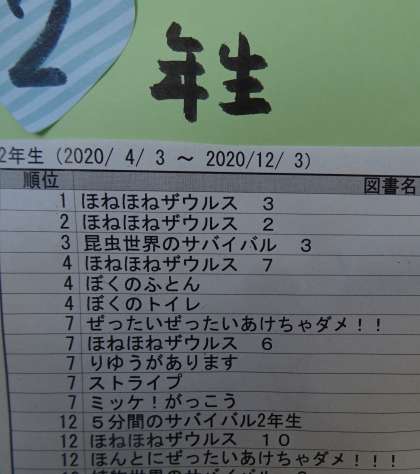 2
年生
2年生（2020/ 4/ 3 ～ 2020/12/ 3）
順位 図書名
1 ほねほねザウルス 3
2 ほねほねザウルス 2
3 昆虫世界のサバイバル 3
4 ほねほねザウルス 7
4 ぼくのふとん
4 ぼくのトイレ
7 ぜったいぜったいあけちゃダメ！！
7 ほねほねザウルス 6
7 りゆうがあります
7 ストライプ
7 ミッケ！がっこう
12 5分間のサバイバル2年生
12 ほねほねザウルス 10
12 ほんとにぜったいあけちゃダメ！！！